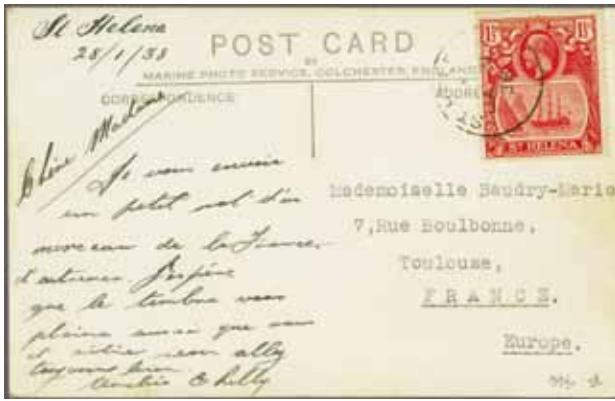 St Helena
28/1/38
POST CARD
BY
MARINE PHOTO SERVICE, COLCHESTER, ENGLAND
CORRESPONDENCE
ADDRE
1½ 1½
ST HELENA
Chère Madame
Je vous envoie
un petit
morceau de la France
J'espère
que le timbre vous
que vous
allez
toujours bien
Mademoiselle Baudry-Marie
7,Rue Boulbonne,
Toulouse,
FRANCE.
Europe.